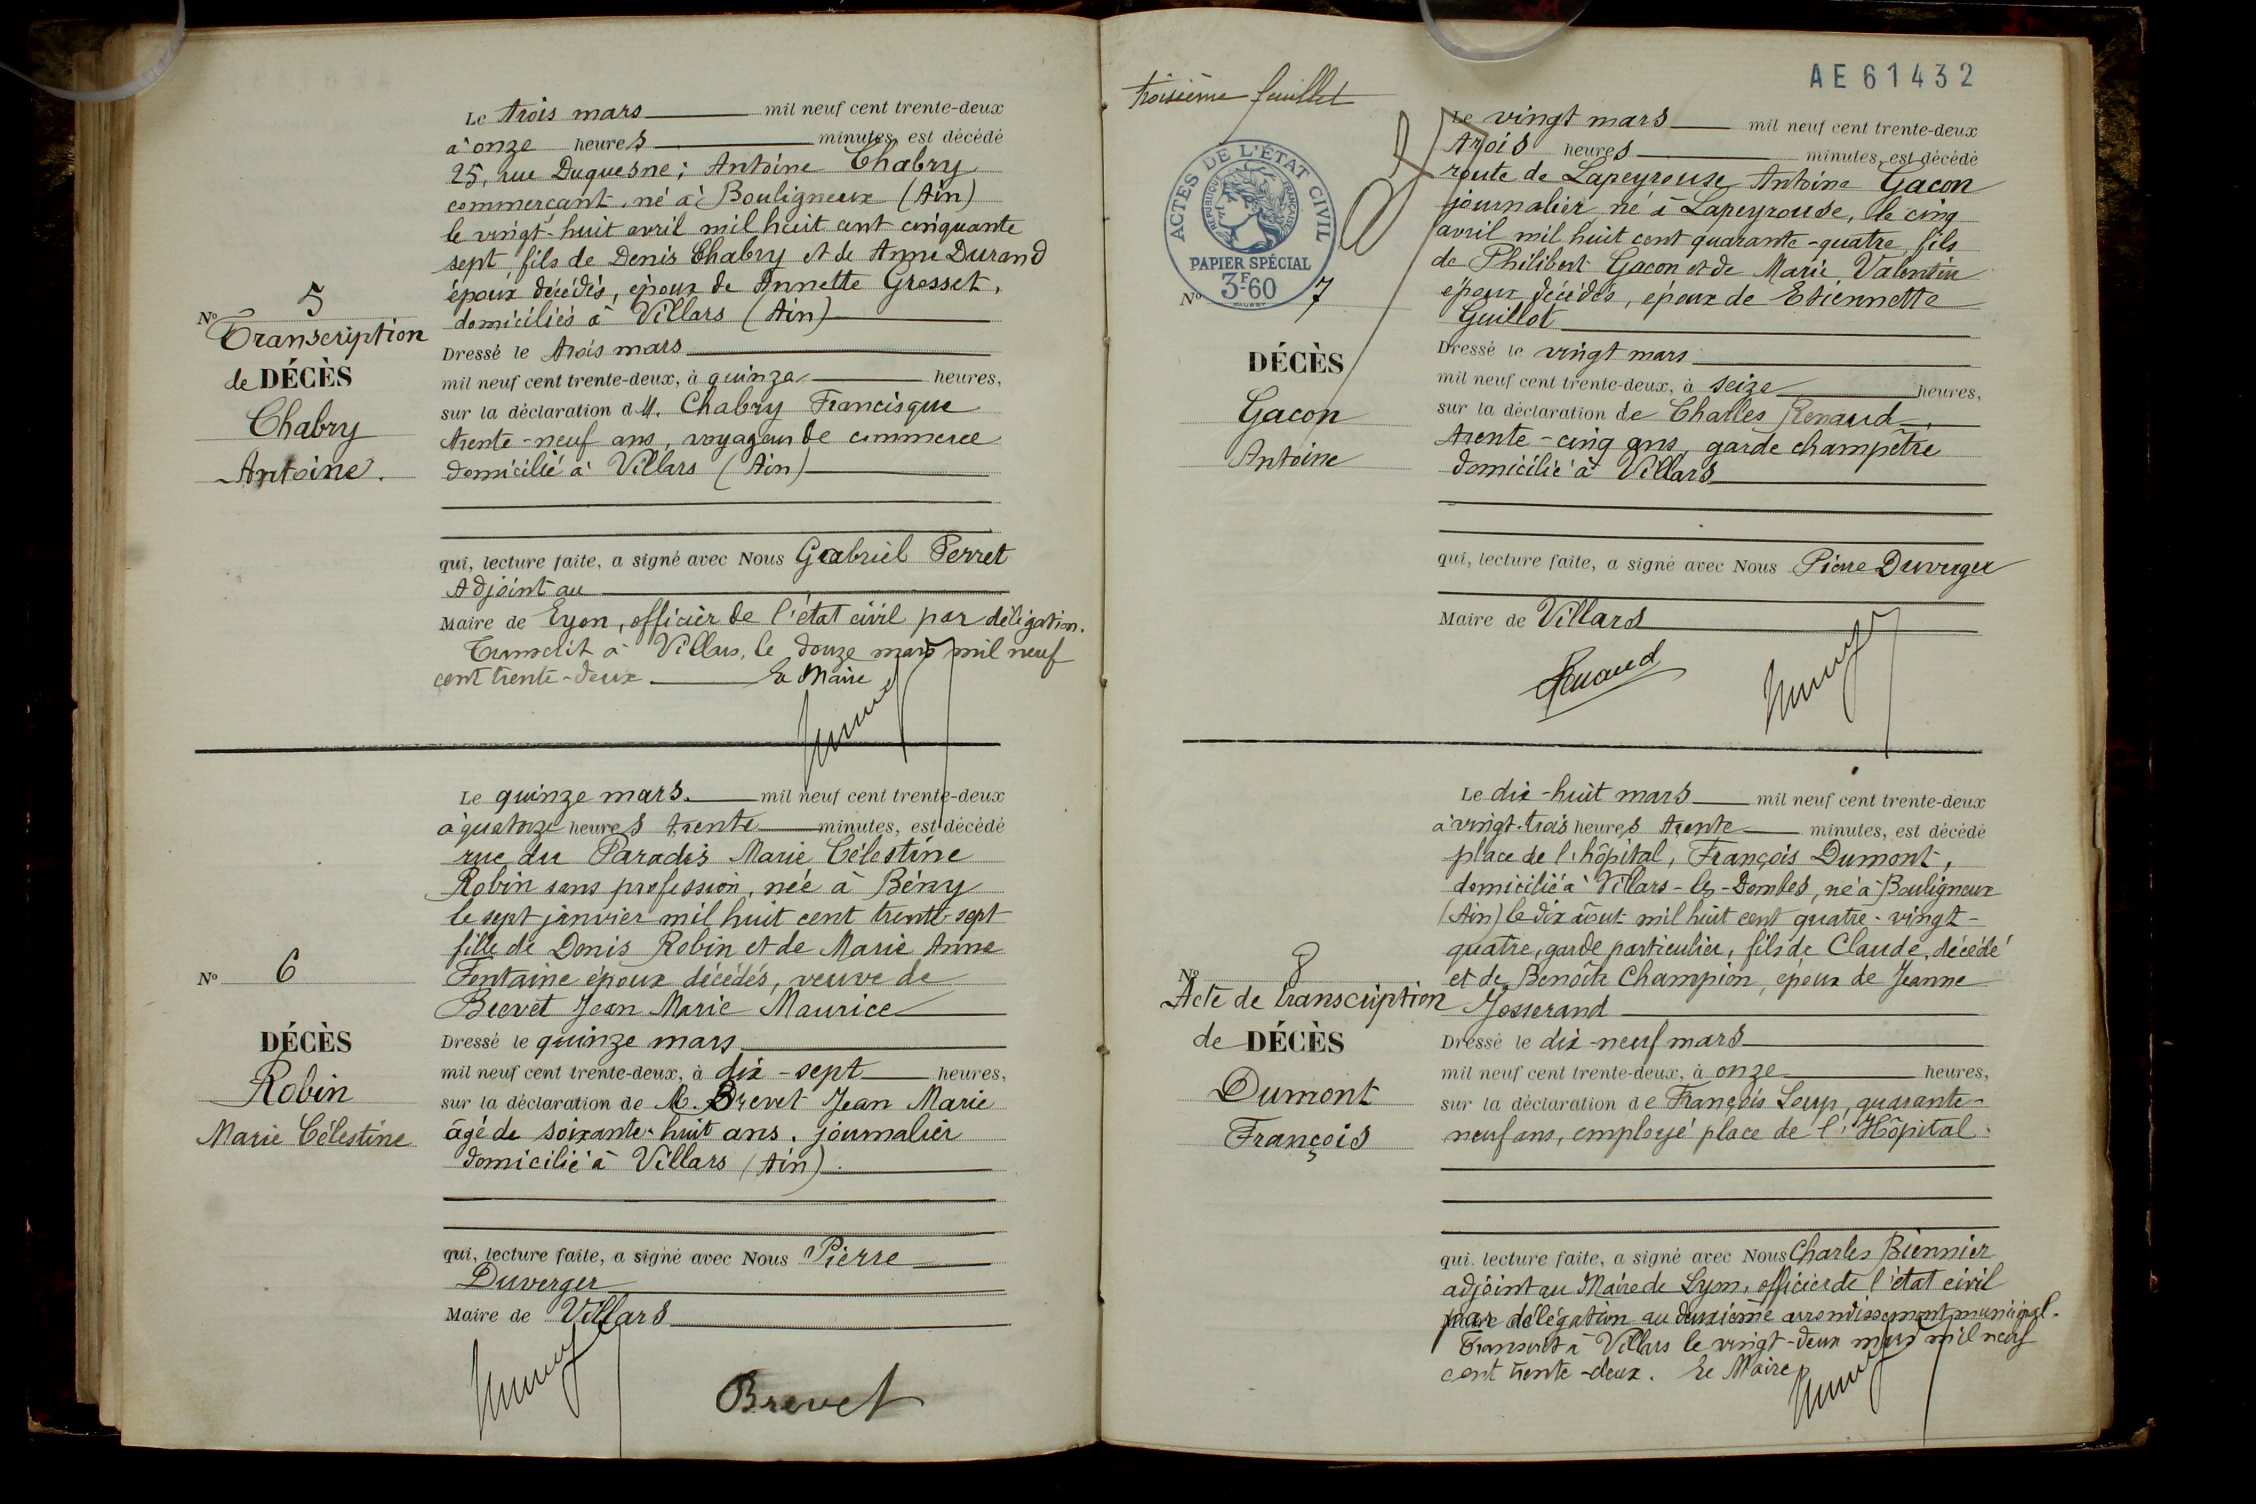 Le trois mars mil neuf cent trente-deux
à onze heures minutes, est décédé
25, rue Duquesne ; Antoine Chabry
commerçant, né à Bouligneux (Ain)
le vingt-huit avril mil huit cent cinquante
sept, fils de Denis Chabry et de Anne Durand
époux décédés, époux de Annette Grosset,
domiciliés à Villars (Ain)
Dressé le trois mars
mil neuf cent trente-deux, à quinze heures,
sur la déclaration d M. Chabry Francisque
trente-neuf ans, voyageur de commerce
domicilié à Villars (Ain)
qui, lecture faite, a signé avec Nous Gabriel Perret
Adjoint au
Maire de Lyon, officier de l'état civil par délégation.
Transcrit à Villars, le douze mars mil neuf
cent trente-deux Le Maire
No 5
Transcription
de DÉCÈS
Chabry
Antoine.
Le quinze mars. mil neuf cent trente-deux
à quatorze heures trente minutes, est décédé
rue du Paradis Marie Célestine
Robin sans profession, née à Bény
le sept janvier mil huit cent trente-sept
fille de Denis Robin et de Marie Anne
Fontaine époux décédés, veuve de
Brevet Jean Marie Maurice
Dressé le quinze mars
mil neuf cent trente-deux, à dix-sept heures,
sur la déclaration de M. Brevet Jean Marie
âgé de soixante-huit ans, journalier
domicilié à Villars (Ain).
qui, lecture faite, a signé avec Nous Pierre
Duverger
Maire de Villars
Brevet
No 6
DÉCÈS
Robin
Marie Célestine
troisième feuillet
AE61432
ACTES DE L'ÉTAT CIVIL
RÉPUBLIQUE FRANÇAISE
PAPIER SPÉCIAL
3F60
Le vingt mars mil neuf cent trente-deux
trois heures minutes, est décédé
route de Lapeyrouse Antoine Gacon
journalier né à Lapeyrouse, le cinq
avril mil huit cent quarante-quatre fils
de Philibert Gacon et de Marie Valentin
époux décédés, époux de Etiennette
Guillot
Dressé le vingt mars
mil neuf cent trente-deux, à seize heures,
sur la déclaration de Charles Renaud,
trente-cinq ans, garde champêtre
domicilié à Villars
qui, lecture faite, a signé avec Nous Pierre Duverger
Maire de Villars
Renaud
No 7
DÉCÈS
Gacon
Antoine
Le dix-huit mars mil neuf cent trente-deux
à vingt-trois heures trente minutes, est décédé
place de l'hôpital, François Dumont,
domicilié à Villars-les-Dombes, né à Bouligneux
(Ain) le dix août mil huit cent quatre-vingt-
quatre, garde particulier, fils de Claude, décédé
et de Benoîte Champion, époux de Jeanne
Josserand
Dressé le dix-neuf mars
mil neuf cent trente-deux, à onze heures,
sur la déclaration de François Loup, quarante-
neuf ans, employé place de l'Hôpital.
qui, lecture faite, a signé avec Nous Charles Biennier
adjoint au Maire de Lyon, officier de l'état civil
par délégation au deuxième arrondissement municipal.
Transcrit à Villars le vingt-deux mars mil neuf
cent trente-deux. Le Maire
No 8
Acte de transcription
de DÉCÈS
Dumont
François